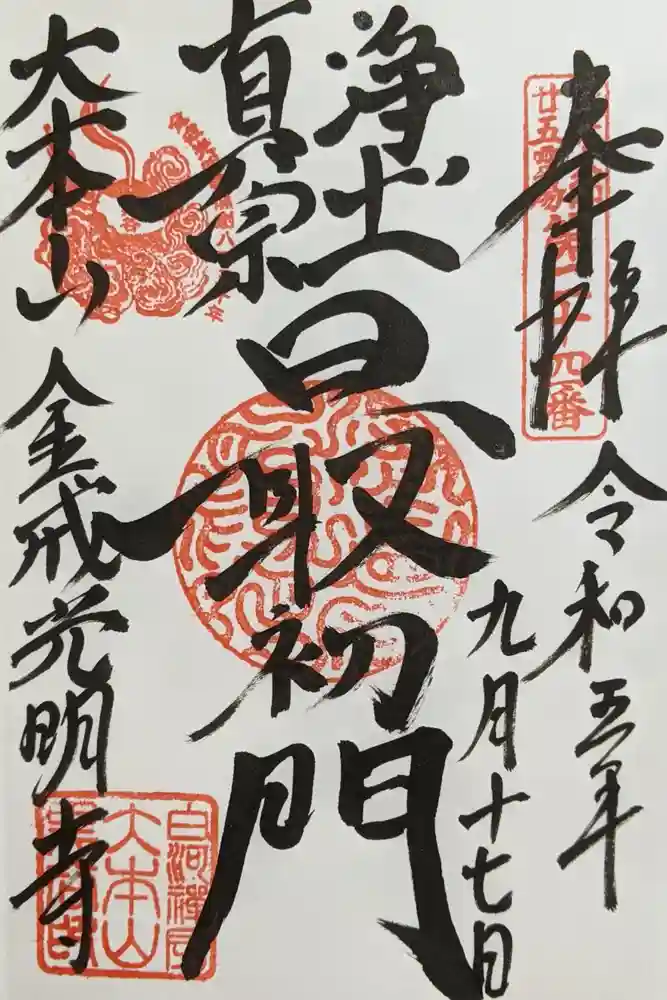 奉拝
令和五年
九月十七日
浄土
真宗
最初門
大本山
金戒光明寺
第二十四番
白河禅房
大本山